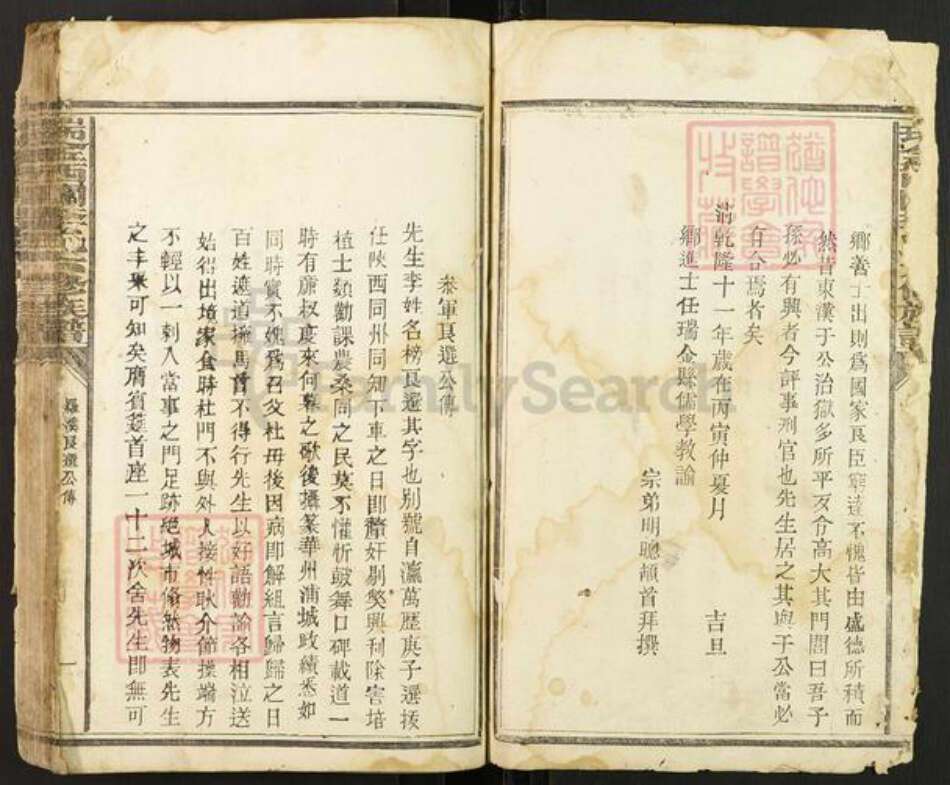 鄉善士出則為國家良臣窮達不愧皆由盛德所積而
然昔東漢于公治獄多所平反令高大其門閭曰吾子
孫必有興者今評事刑官也先生居之其與于公當必
有合焉者矣
清乾隆十一年歲在丙寅仲夏月 吉旦
鄉進士任瑞金縣儒學教諭
宗弟明聰頓首拜撰
參軍良選公傳
先生李姓名榜良選其字也別號自瀛萬歷庚子選授
任陝西同州同知下車之日即釐奸剔獘興利除害培
植士類勸課農桑同之民莫不懽忻鼓舞口碑載道一
時有廉叔度來何暮之歌後攝篆華州浦城政績悉如
同時實不媿為召父杜毋後因病即解組言歸歸之日
百姓遮道擁馬首不得行先生以好語勸諭各相泣送
始得出境家食時杜門不與外人接性耿介節操端方
不輕以一刺入當事之門足跡絕城市翛然物表先生
之丰采可知矣膺賓筵首座一十二次舍先生即無可
羅溪良選公傳
一
FamilySearch